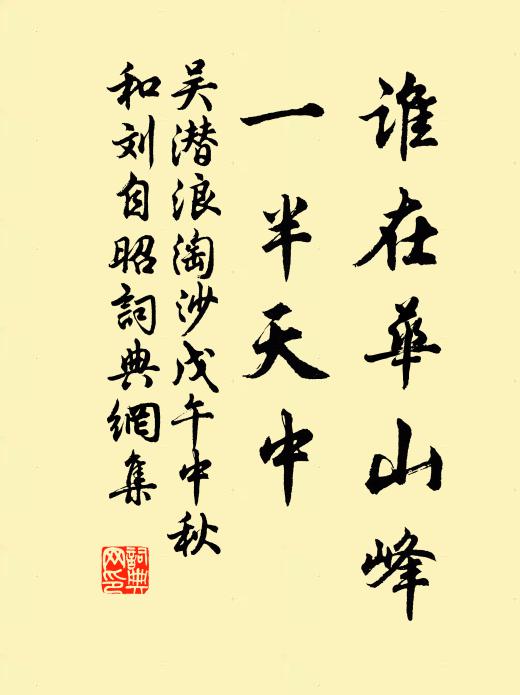 谁在华山峰
一半天中
吴潜浪淘沙戊午中秋
和刘自昭詞典網集
詞典网印